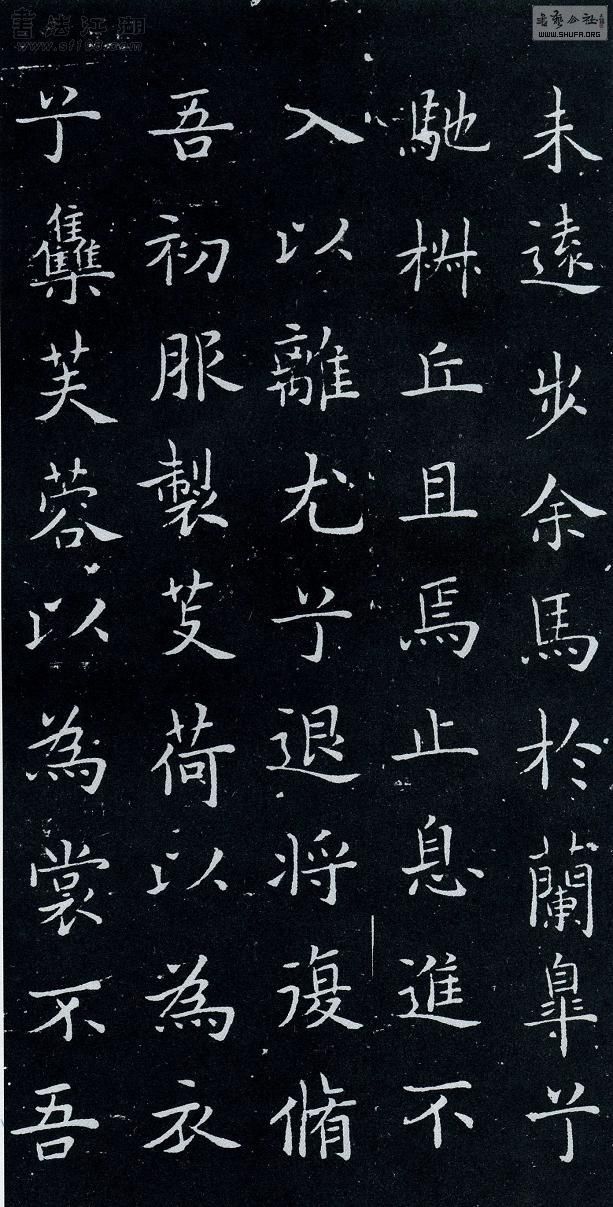 未遠步余馬於蘭臯兮
馳椒丘且焉止息進不
入以離尤兮退將復脩
吾初服製芰荷以為衣
兮雧芙蓉以為裳不吾
書法江湖
www.sf108.com
書藝公社
WWW.SHUFA.ORG